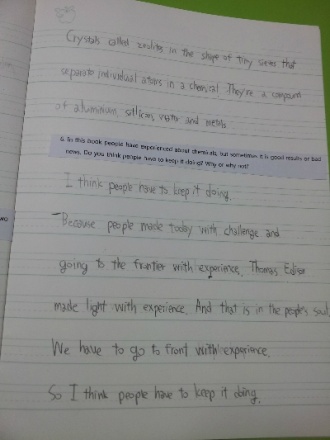 Crystals called zeolites in the shape of tiny sieves that
separate individual atoms in a chemical. They're a compound
of aluminium, sillicon, water and metals
6. In this book people have experienced about chemicals, but sometimes it is good results or bad
news. Do you think people have to keep it doing? Why or why not?
I think people have to keep it doing.
Because people made today with challenge and
going to the frontier with experience. Thomas Edison
made light with experience. And that is in the people's soul.
We have to go to front with experience.
So I think people have to keep it doing.